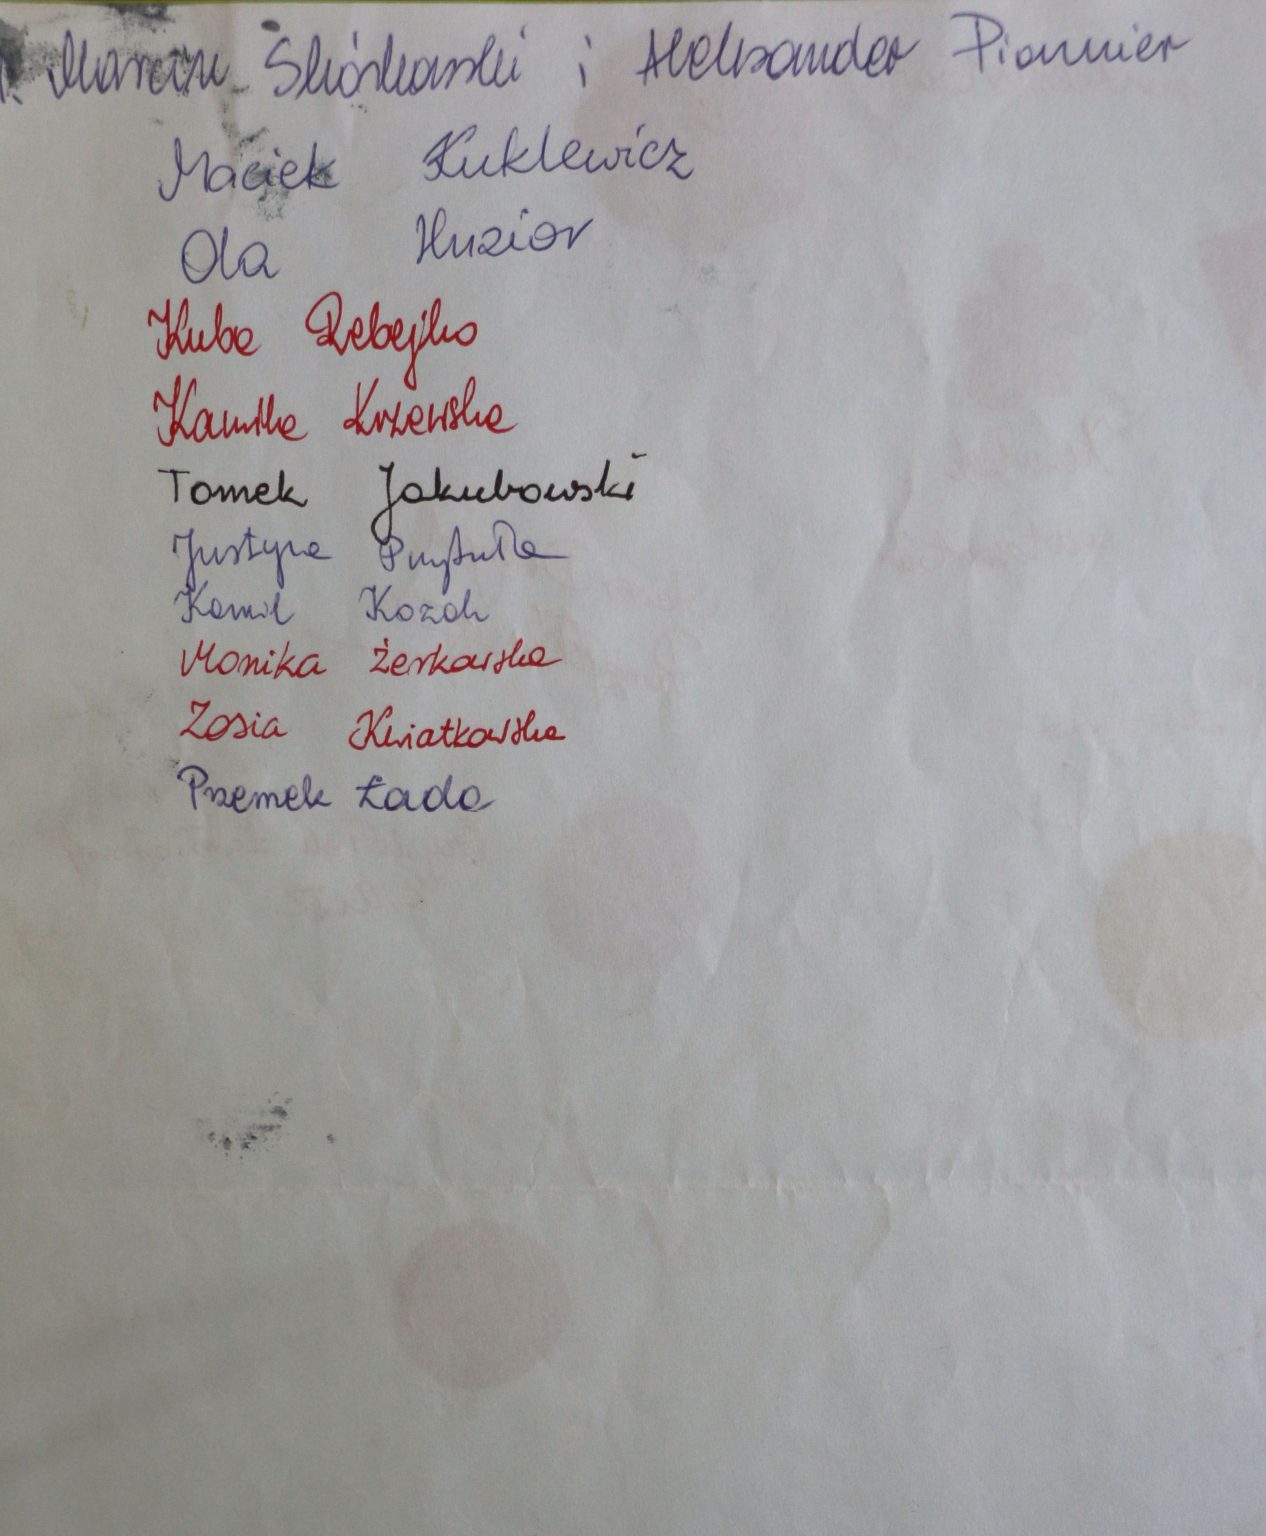 Marcin Skórkowski i Aleksander Pionnier
Maciek Kuklewicz
Ola Huzior
Kuba Rebejko
Kamila Krzewska
Tomek Jakubowski
Justyna Przytuła
Kamil Kozak
Monika Żerkowska
Zosia Kwiatkowska
Przemek Łada